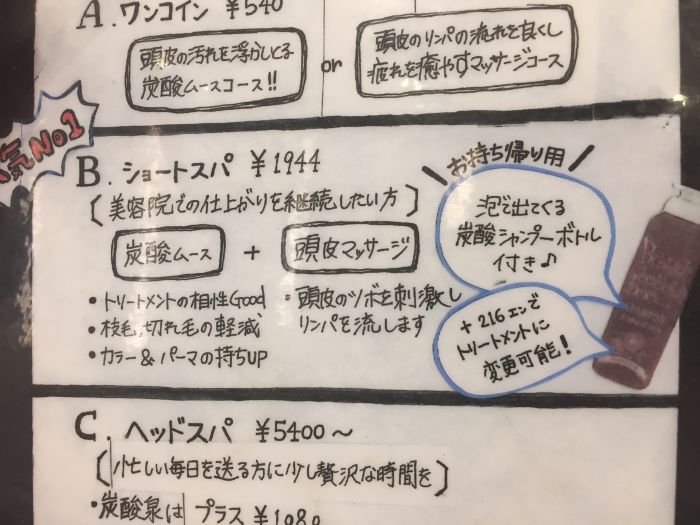 A. ワンコイン ¥540
頭皮の汚れを浮かしとる
炭酸ムースコース!!
or
頭皮のリンパの流れを良くし
疲れを癒やすマッサージコース
気No1
B. ショートスパ ¥1944
[美容院での仕上がりを継続したい方]
炭酸ムース + 頭皮マッサージ
・トリートメントの相性Good
・枝毛、切れ毛の軽減
・カラー&パーマの持ちUP
・頭皮のツボを刺激し
リンパを流します
お持ち帰り用
泡で出てくる
炭酸シャンプーボトル
付き♪
+216エンで
トリートメントに
変更可能!
C. ヘッドスパ ¥5400〜
[忙しい毎日を送る方に少し贅沢な時間を]
・炭酸泉は プラス ¥1080